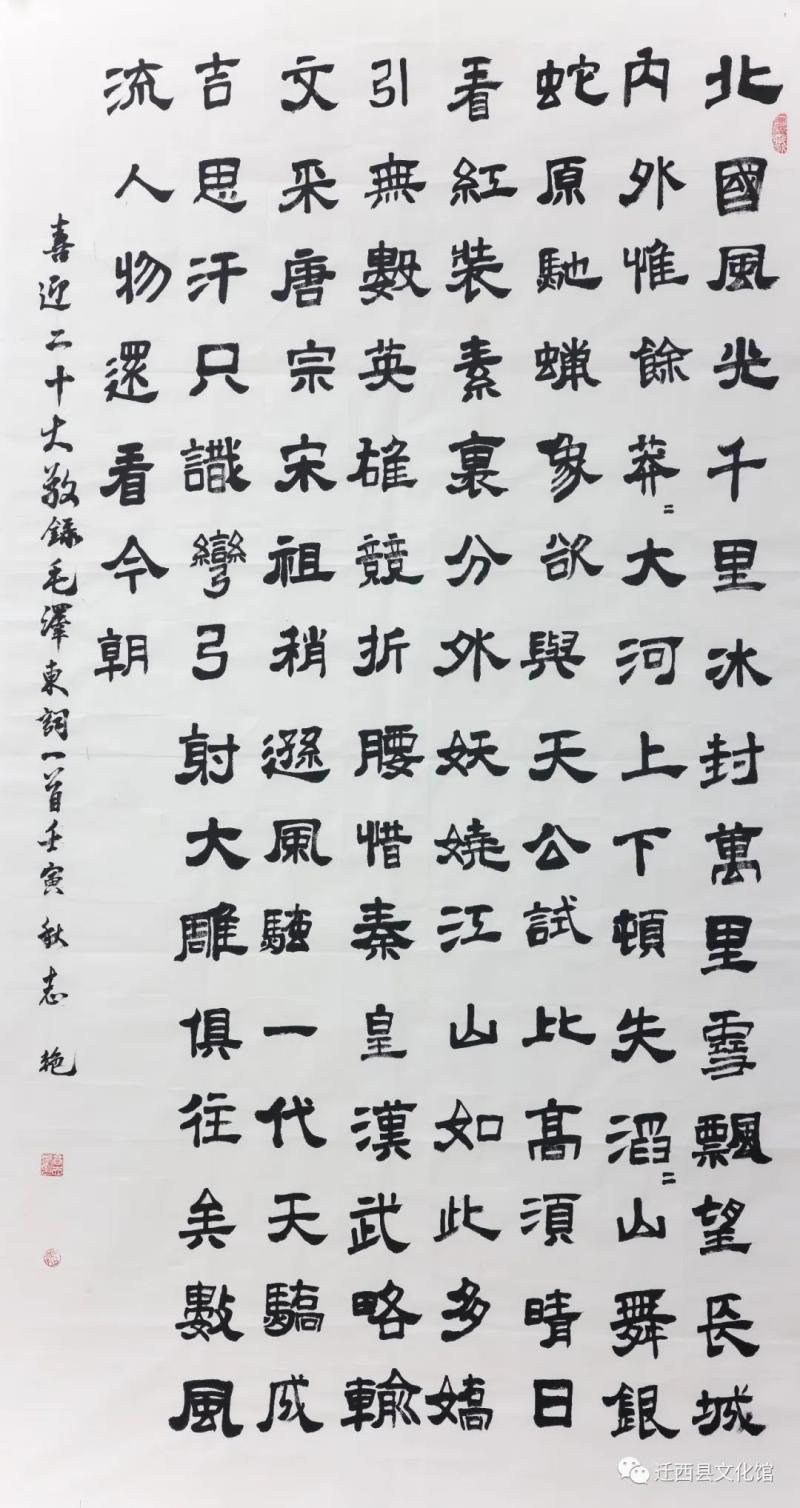 北國風光千里冰封萬里雪飄望長城
内外惟餘莽〻大河上下頓失滔〻山舞銀
蛇原馳蠟象欲與天公試比高須晴日
看紅裝素裹分外妖嬈江山如此多嬌
引無數英雄競折腰惜秦皇漢武略輸
文采唐宗宋祖稍遜風騷一代天驕成
吉思汗只識彎弓射大雕俱往矣數風
流人物還看今朝
喜迎二十大敬録毛澤東詞一首壬寅秋志艳
迁西县文化馆